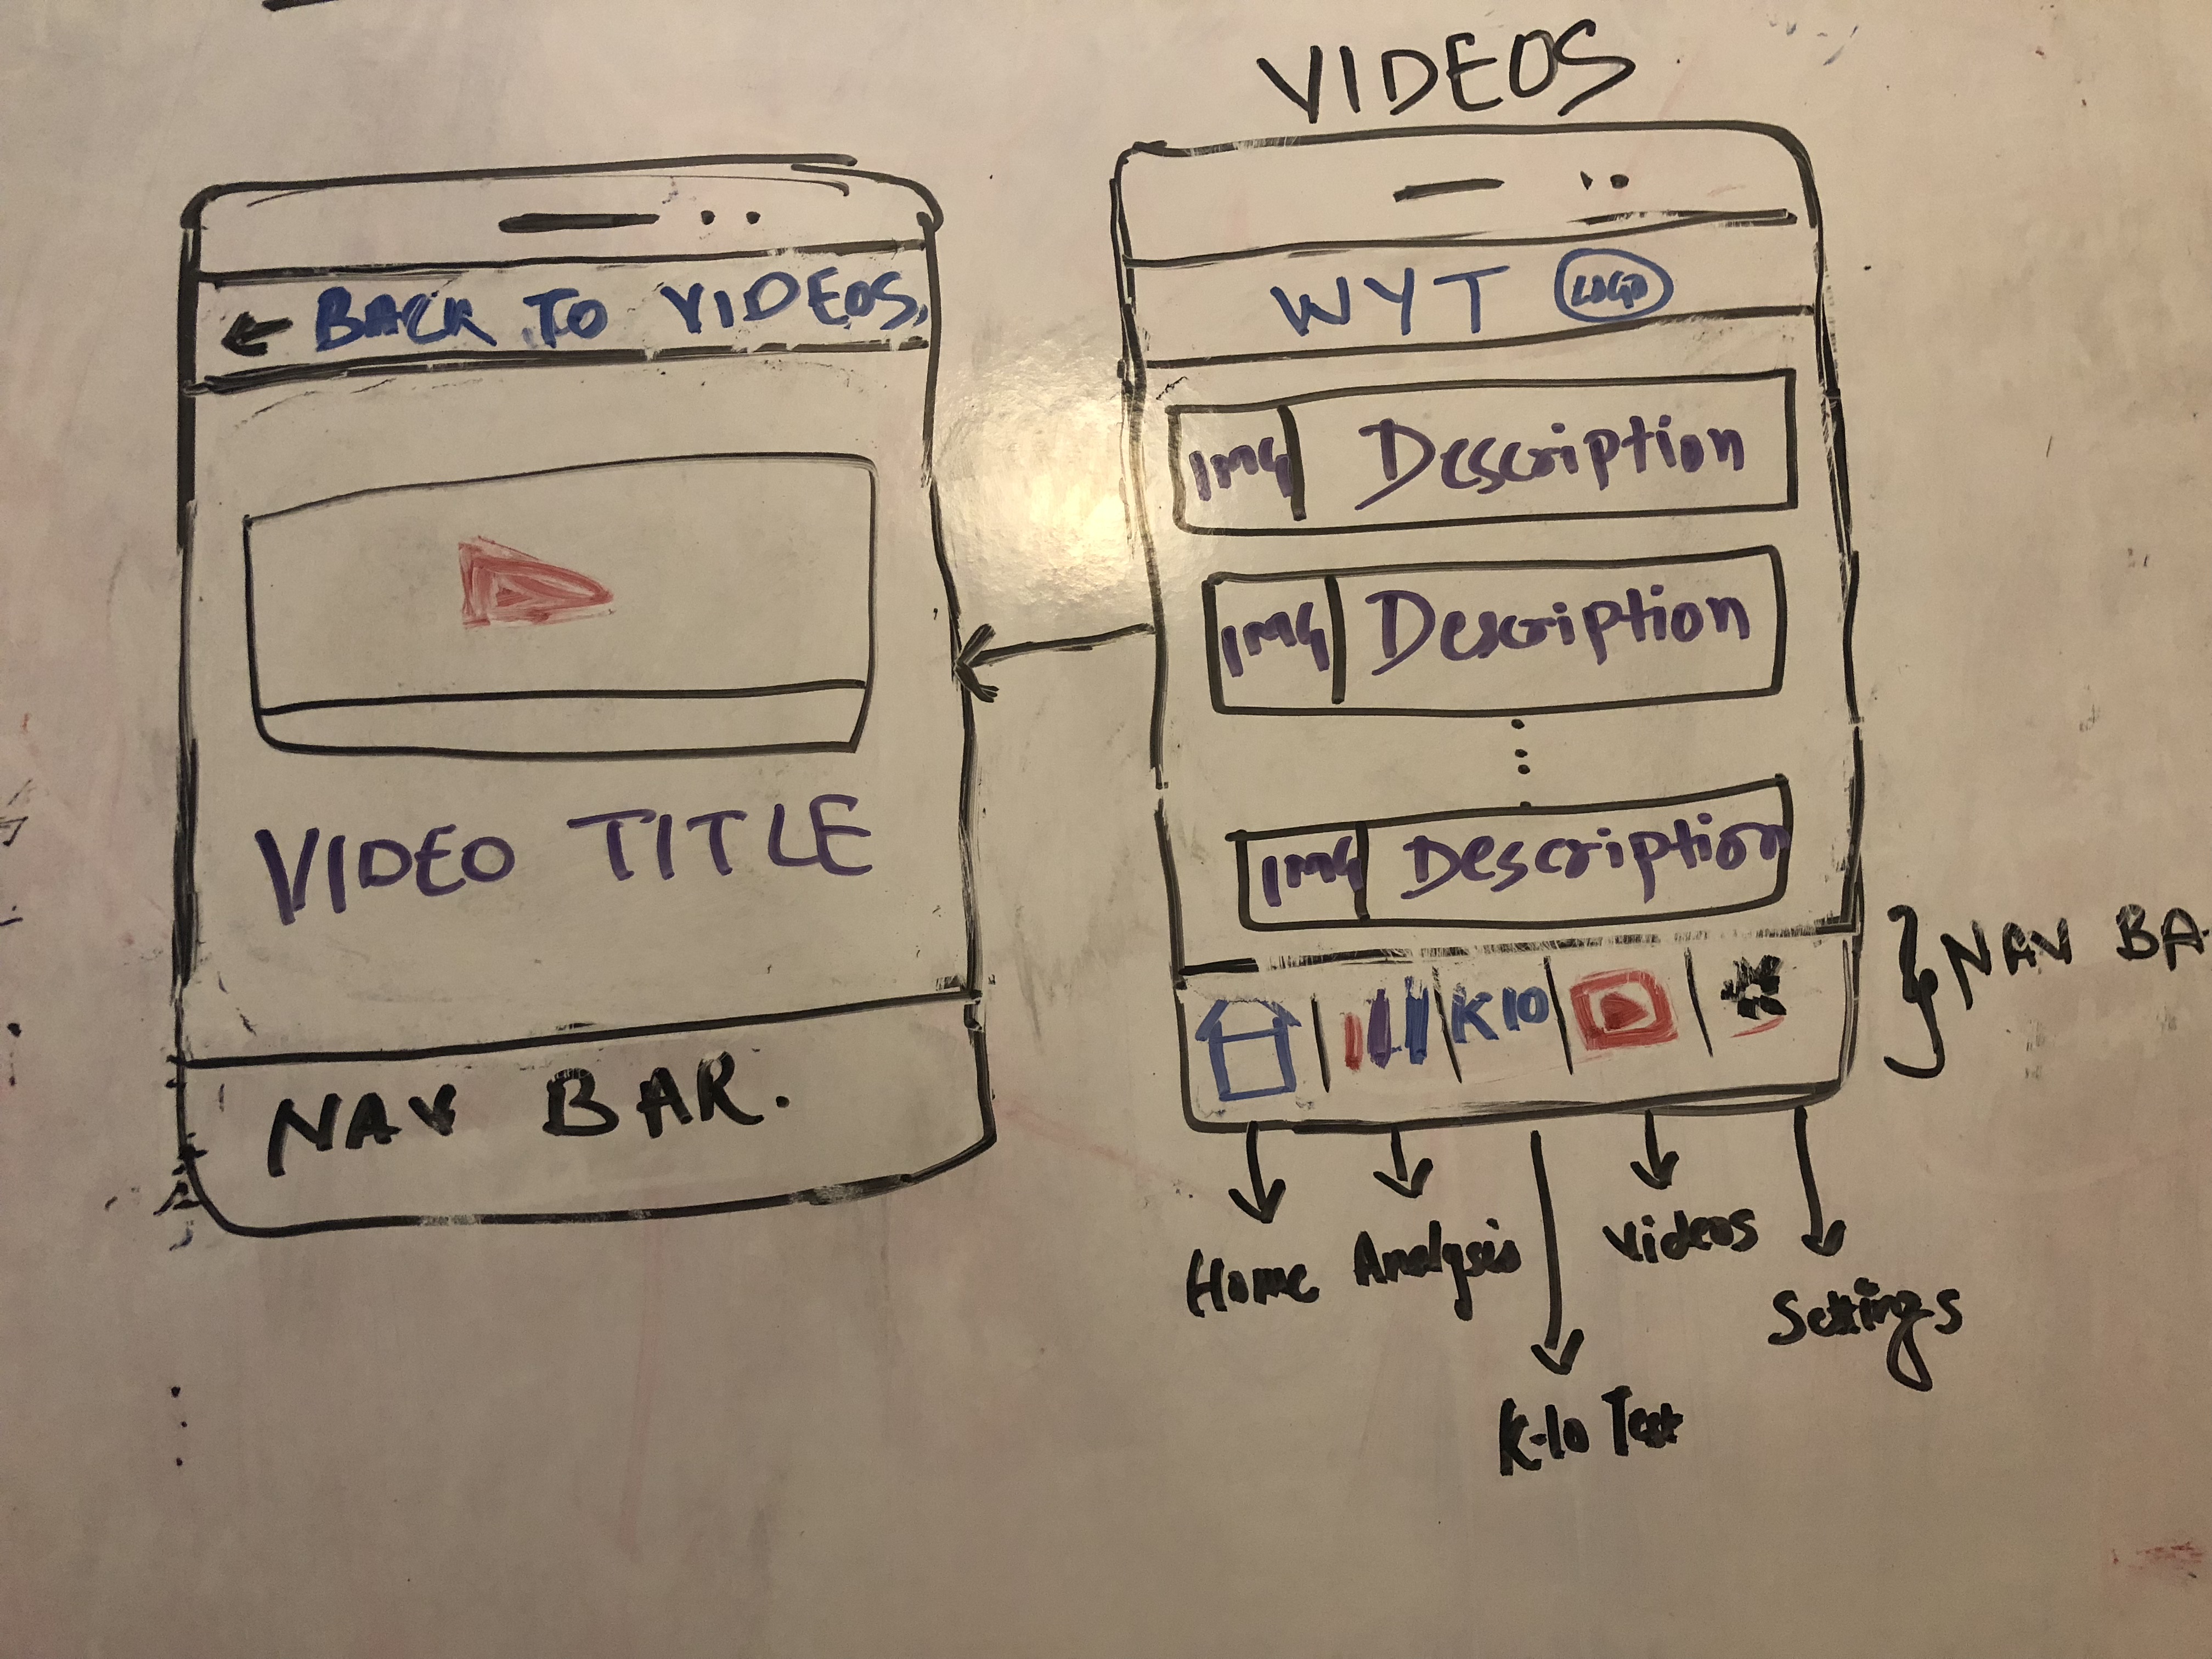 ← BACK TO VIDEOS.
VIDEO TITLE
NAV BAR.
VIDEOS
WYT LOGO
IMG Description
IMG Description
IMG Description
K10
NAV BA
Home
Analysis
K-10 Test
Videos
Settings